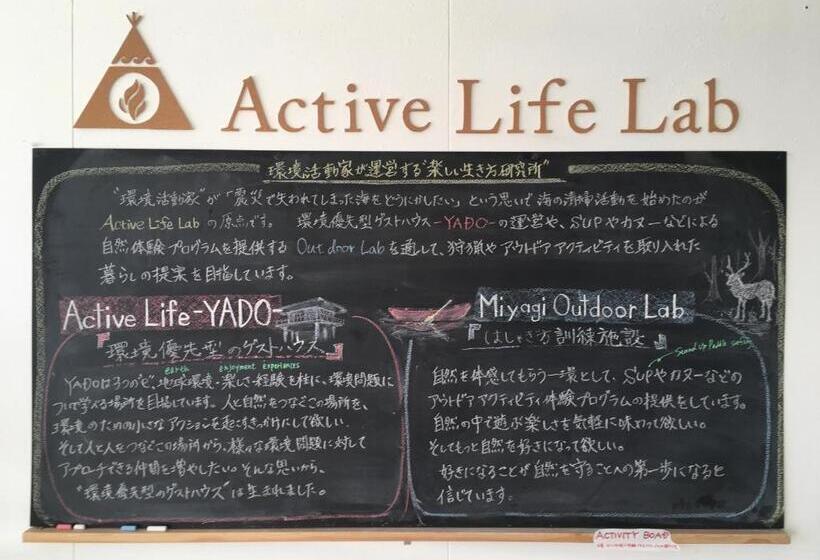 Active Life Lab
環境活動家が運営する"楽しい生き方研究所"
"環境活動家"が「震災で失われてしまった海をどうにかしたい」という思いで海の清掃活動を始めたのが
Active Life Lab の原点です。 環境優先型ゲストハウス-YADO-の運営や、SUPやカヌーなどによる
自然体験プログラムを提供する Outdoor Labを通して、狩猟やアウトドアアクティビティを取り入れた
暮らしの提案を目指しています。
Active Life-YADO-
環境優先型のゲストハウス
earth enjoyment experiences
YADOは3つのど、地球環境・楽しさ・経験を柱に、環境問題に
ついて学べる場所を目指しています。人と自然をつなぐこの場所を、
環境のための小さなアクションを起こすきっかけにして欲しい。
そして人と人をつなぐこの場所から、様々な環境問題に対して
アプローチできる仲間を増やしたい。そんな思いから、
"環境優先型のゲストハウス"は生まれました。
Miyagi Outdoor Lab
はしゃぎ方訓練施設
Stand Up Paddle
自然を体感してもらう一環として、SUPやカヌーなどの
アウトドアアクティビティ体験プログラムの提供をしています。
自然の中で遊ぶ楽しさを気軽に味わって欲しい。
そしてもっと自然を好きになって欲しい。
好きになることが自然を守ることへの第一歩になると
信じています。
ACTIVITY BOAD